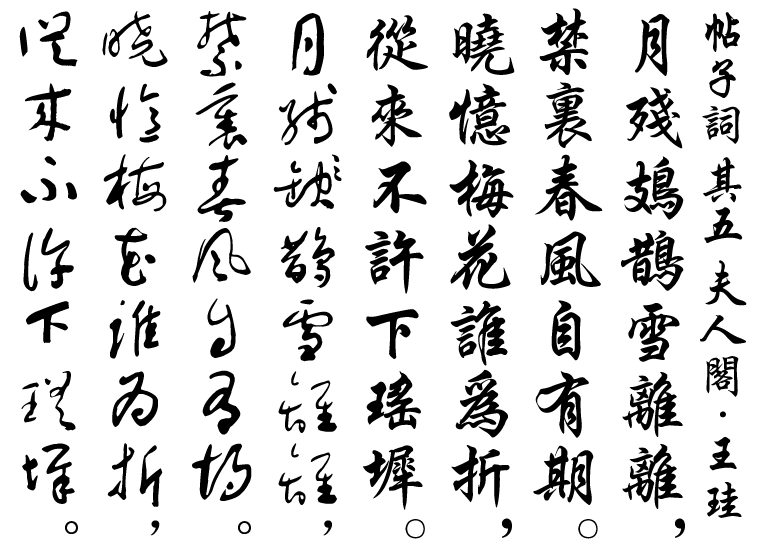 帖子詞 其五 夫人閣·王珪
月殘鳷鵲雪離離，
禁裏春風自有期。
曉憶梅花誰爲折，
從來不許下瑤墀。
月殘鵲雪離離，
禁裏春風自有期。
曉憶梅花誰爲折，
從來不許下瑤墀。